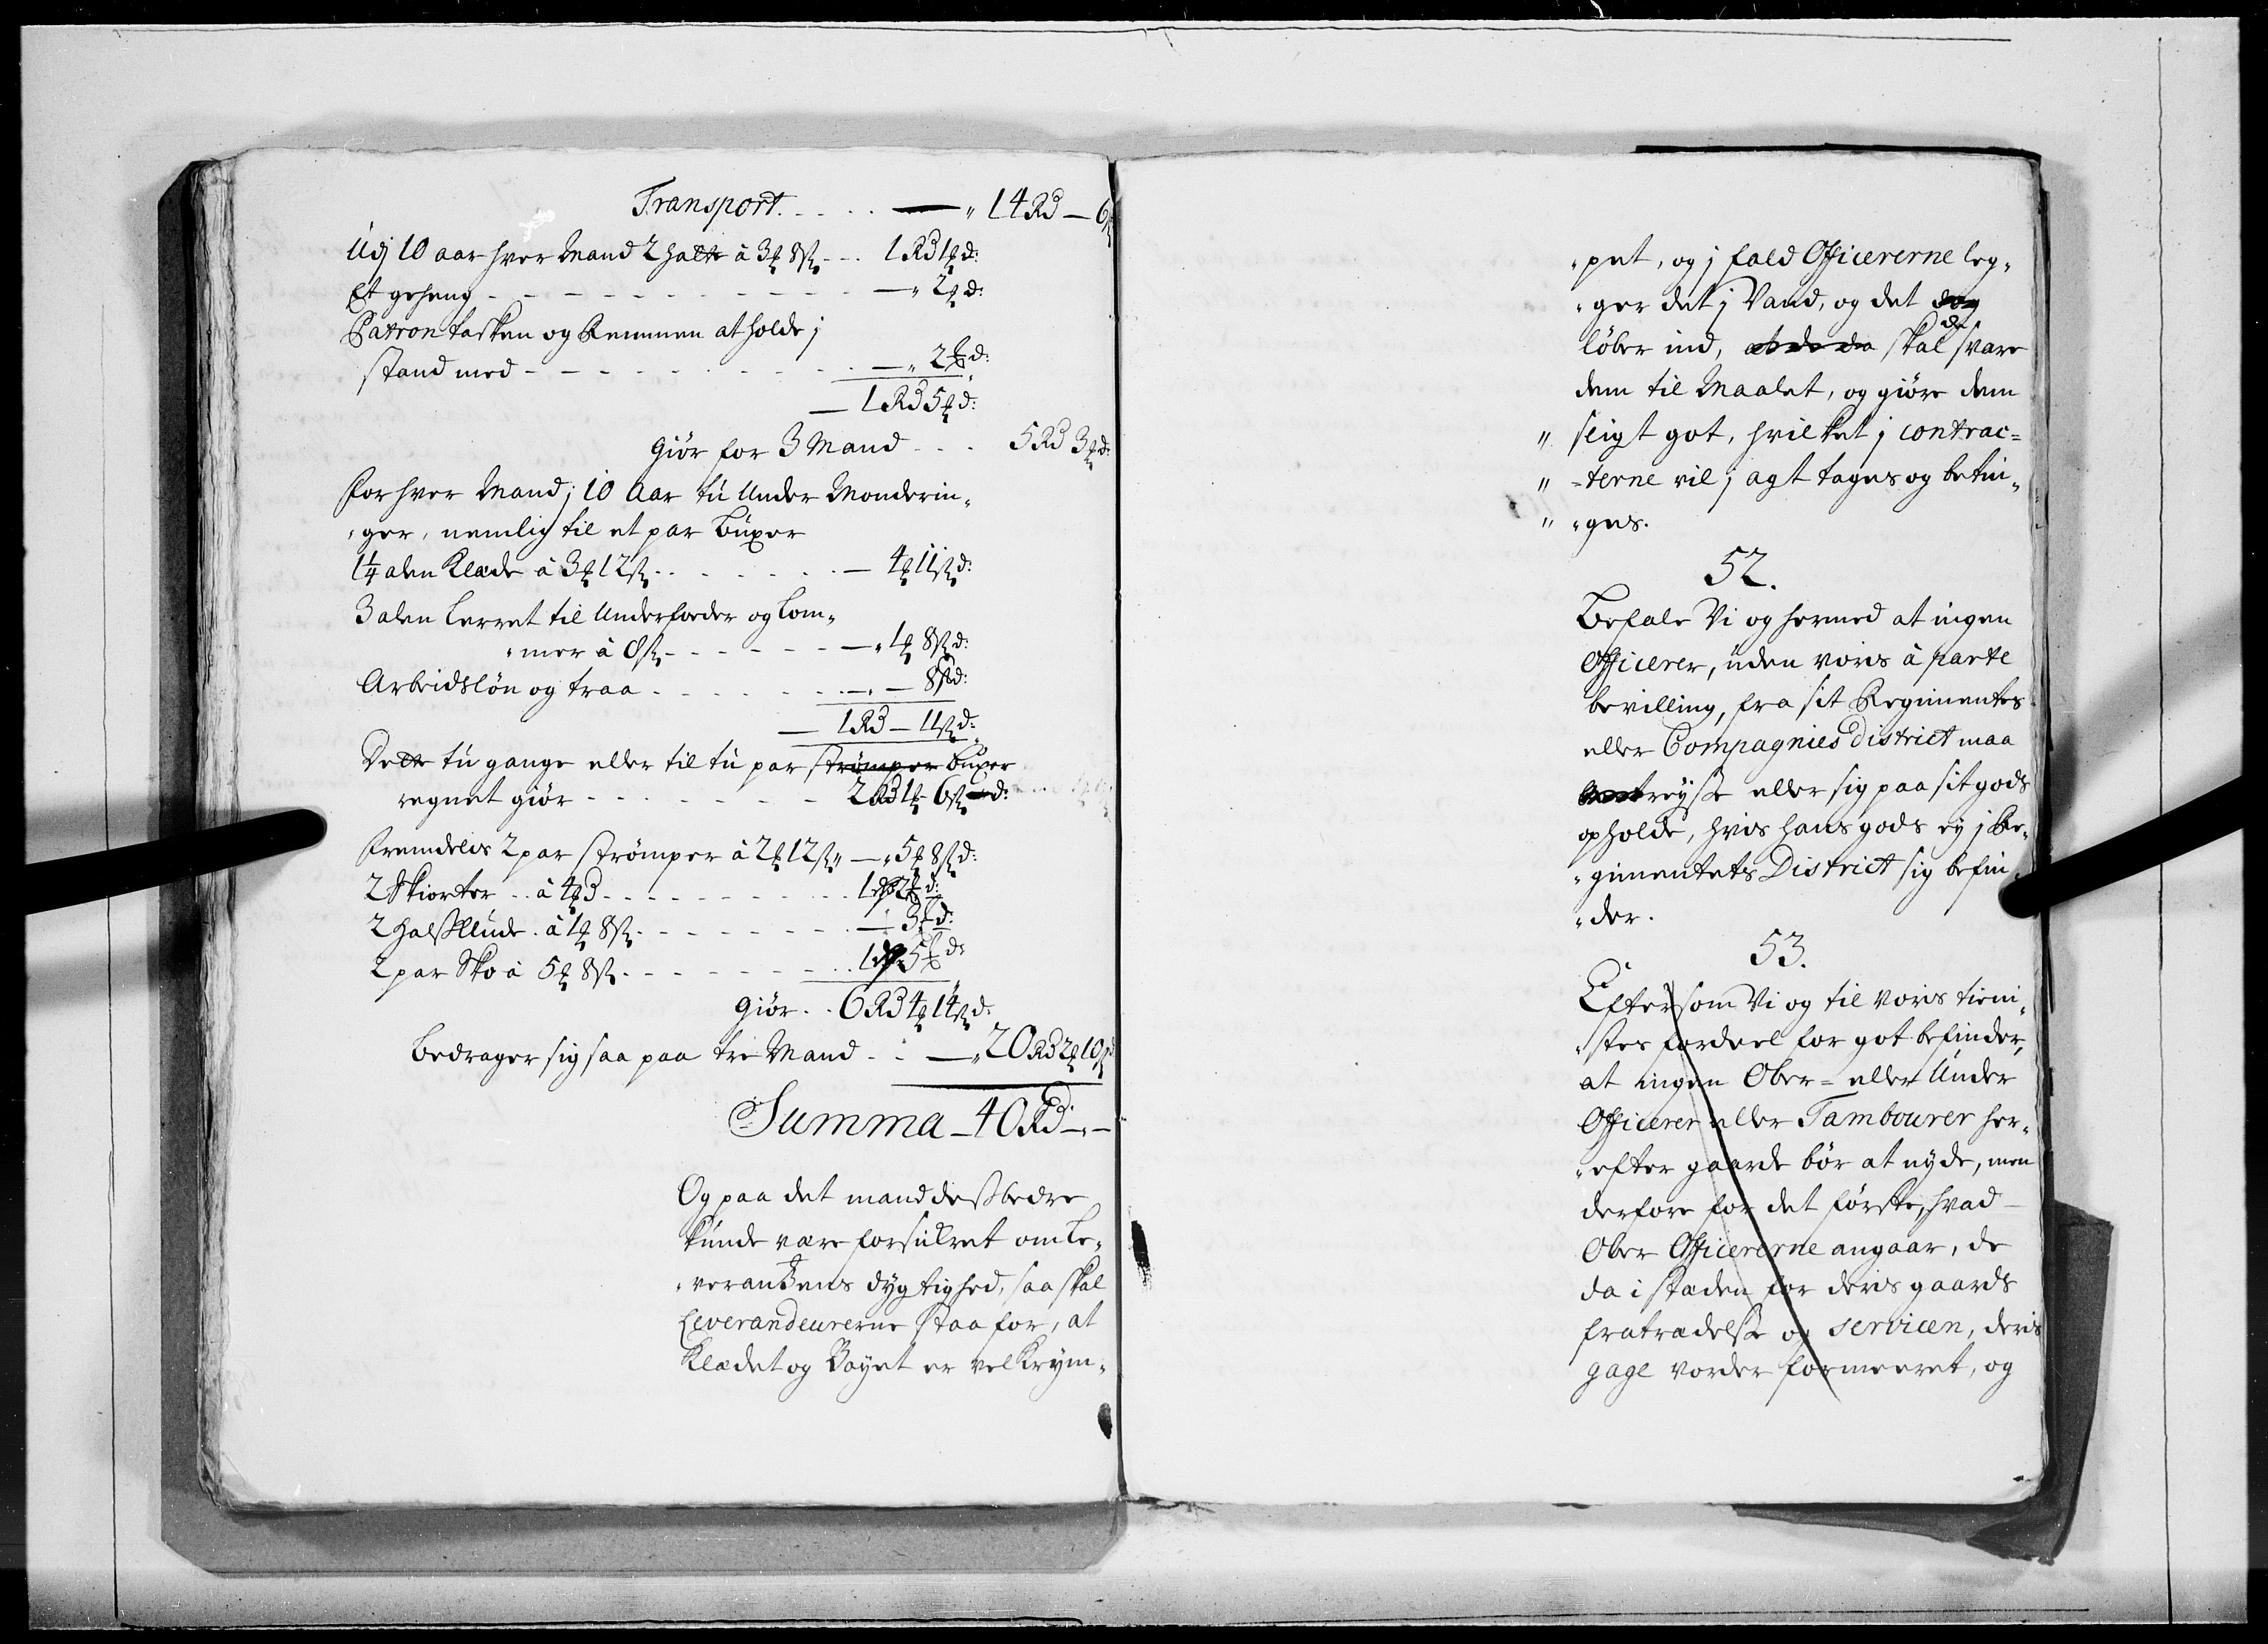 Transport. . . . . — „ 14 Rd — 6
Udj 10 aar hver Mand 2 hatte à 3 ₰ 8 ß . . . 1 Rd 1 ₰ d:
Et geheng - - - - - - - - - —„ 2 ₰ d:
Patron tasken og Remmen at holde j
stand med - - - - - - - - —„ 2 ₰ d:
— 1 Rd 5 ₰ d:
giør for 3 Mand - - - 5 Rd 3 ₰ d:
For hver Mand j 10 Aar tú Under Monderin„
„ger, nemlig til et par búxer
1¼ alen Klæde à 3 ₰ 12 ß . . . . . . — 4 ₰ 11 ß d:
3 alen lerret til Underforder og lom„
„mer à 8 ß - - - - - - —„ 1 ₰ 8 ß d:
Arbeidsløn og traa - - - - - —„— 8 ß d:
— 1 Rd — 11 ß d:
Dette tú gange eller til tú par strømper búxer
regnet giør - - - - - - 2 Rd 1 ₰ 6 ß d:
Fremdeles 2 par strømper à 2 ₰ 12 ß „ —„ 5 ₰ 8 ß d:
2 Skiorter . . à 4 ₰ d - - - - - - - 1 Rd 2 ₰ d:
2 halßklude . à 1 ₰ 8 ß - - - - - - — 3 ₰ d:
2 par Sko à 5 ₰ 8 ß - - - - - - . . 1 Rd 5 ₰ d:
giør . . 6 Rd 4 ₰ 14 ß d:
bedrager sig saa paa tre Mand - - —„ 20 Rd 2 ₰ 10 ß
Summa — 40 Rd —„—
Og paa det mand deß bedre
kúnde være forsickret om le„
„verantzens dygtighed, saa skal
Leverandeurerne staa for, at
Klædet og Bayet er vel krým„
„pet, og j fald Officererne leg„
„ger det j Vand, og det dog
løber ind, at de da skal de svare
dem til Maalet, og giøre dem
„ sligt got, hvilket j contrac=
„ =terne vil j agt tages og betin„
„ „ges.
52.
Befale Vi og hermed at ingen
Officerer, úden vores à parte
bevilling, fra sit Regimentes
eller Compagnies District maa
reyse eller sig paa sit gods
opholde, hvis hans gods ey j Re„
„gimentets District sig befin„
„der.
53.
Eftersom Vi og til vores tieni„
„stes fordeel for got befinder,
at ingen Ober= eller Únder
Officerer eller Tambourer her„
„efter gaarde bør at nyde, men
derfore for det første, hvad
Ober Officererne angaar, de
da i stæden for deris gaards
fratrædelse og servicen, deris
gage vorder formeeret, og